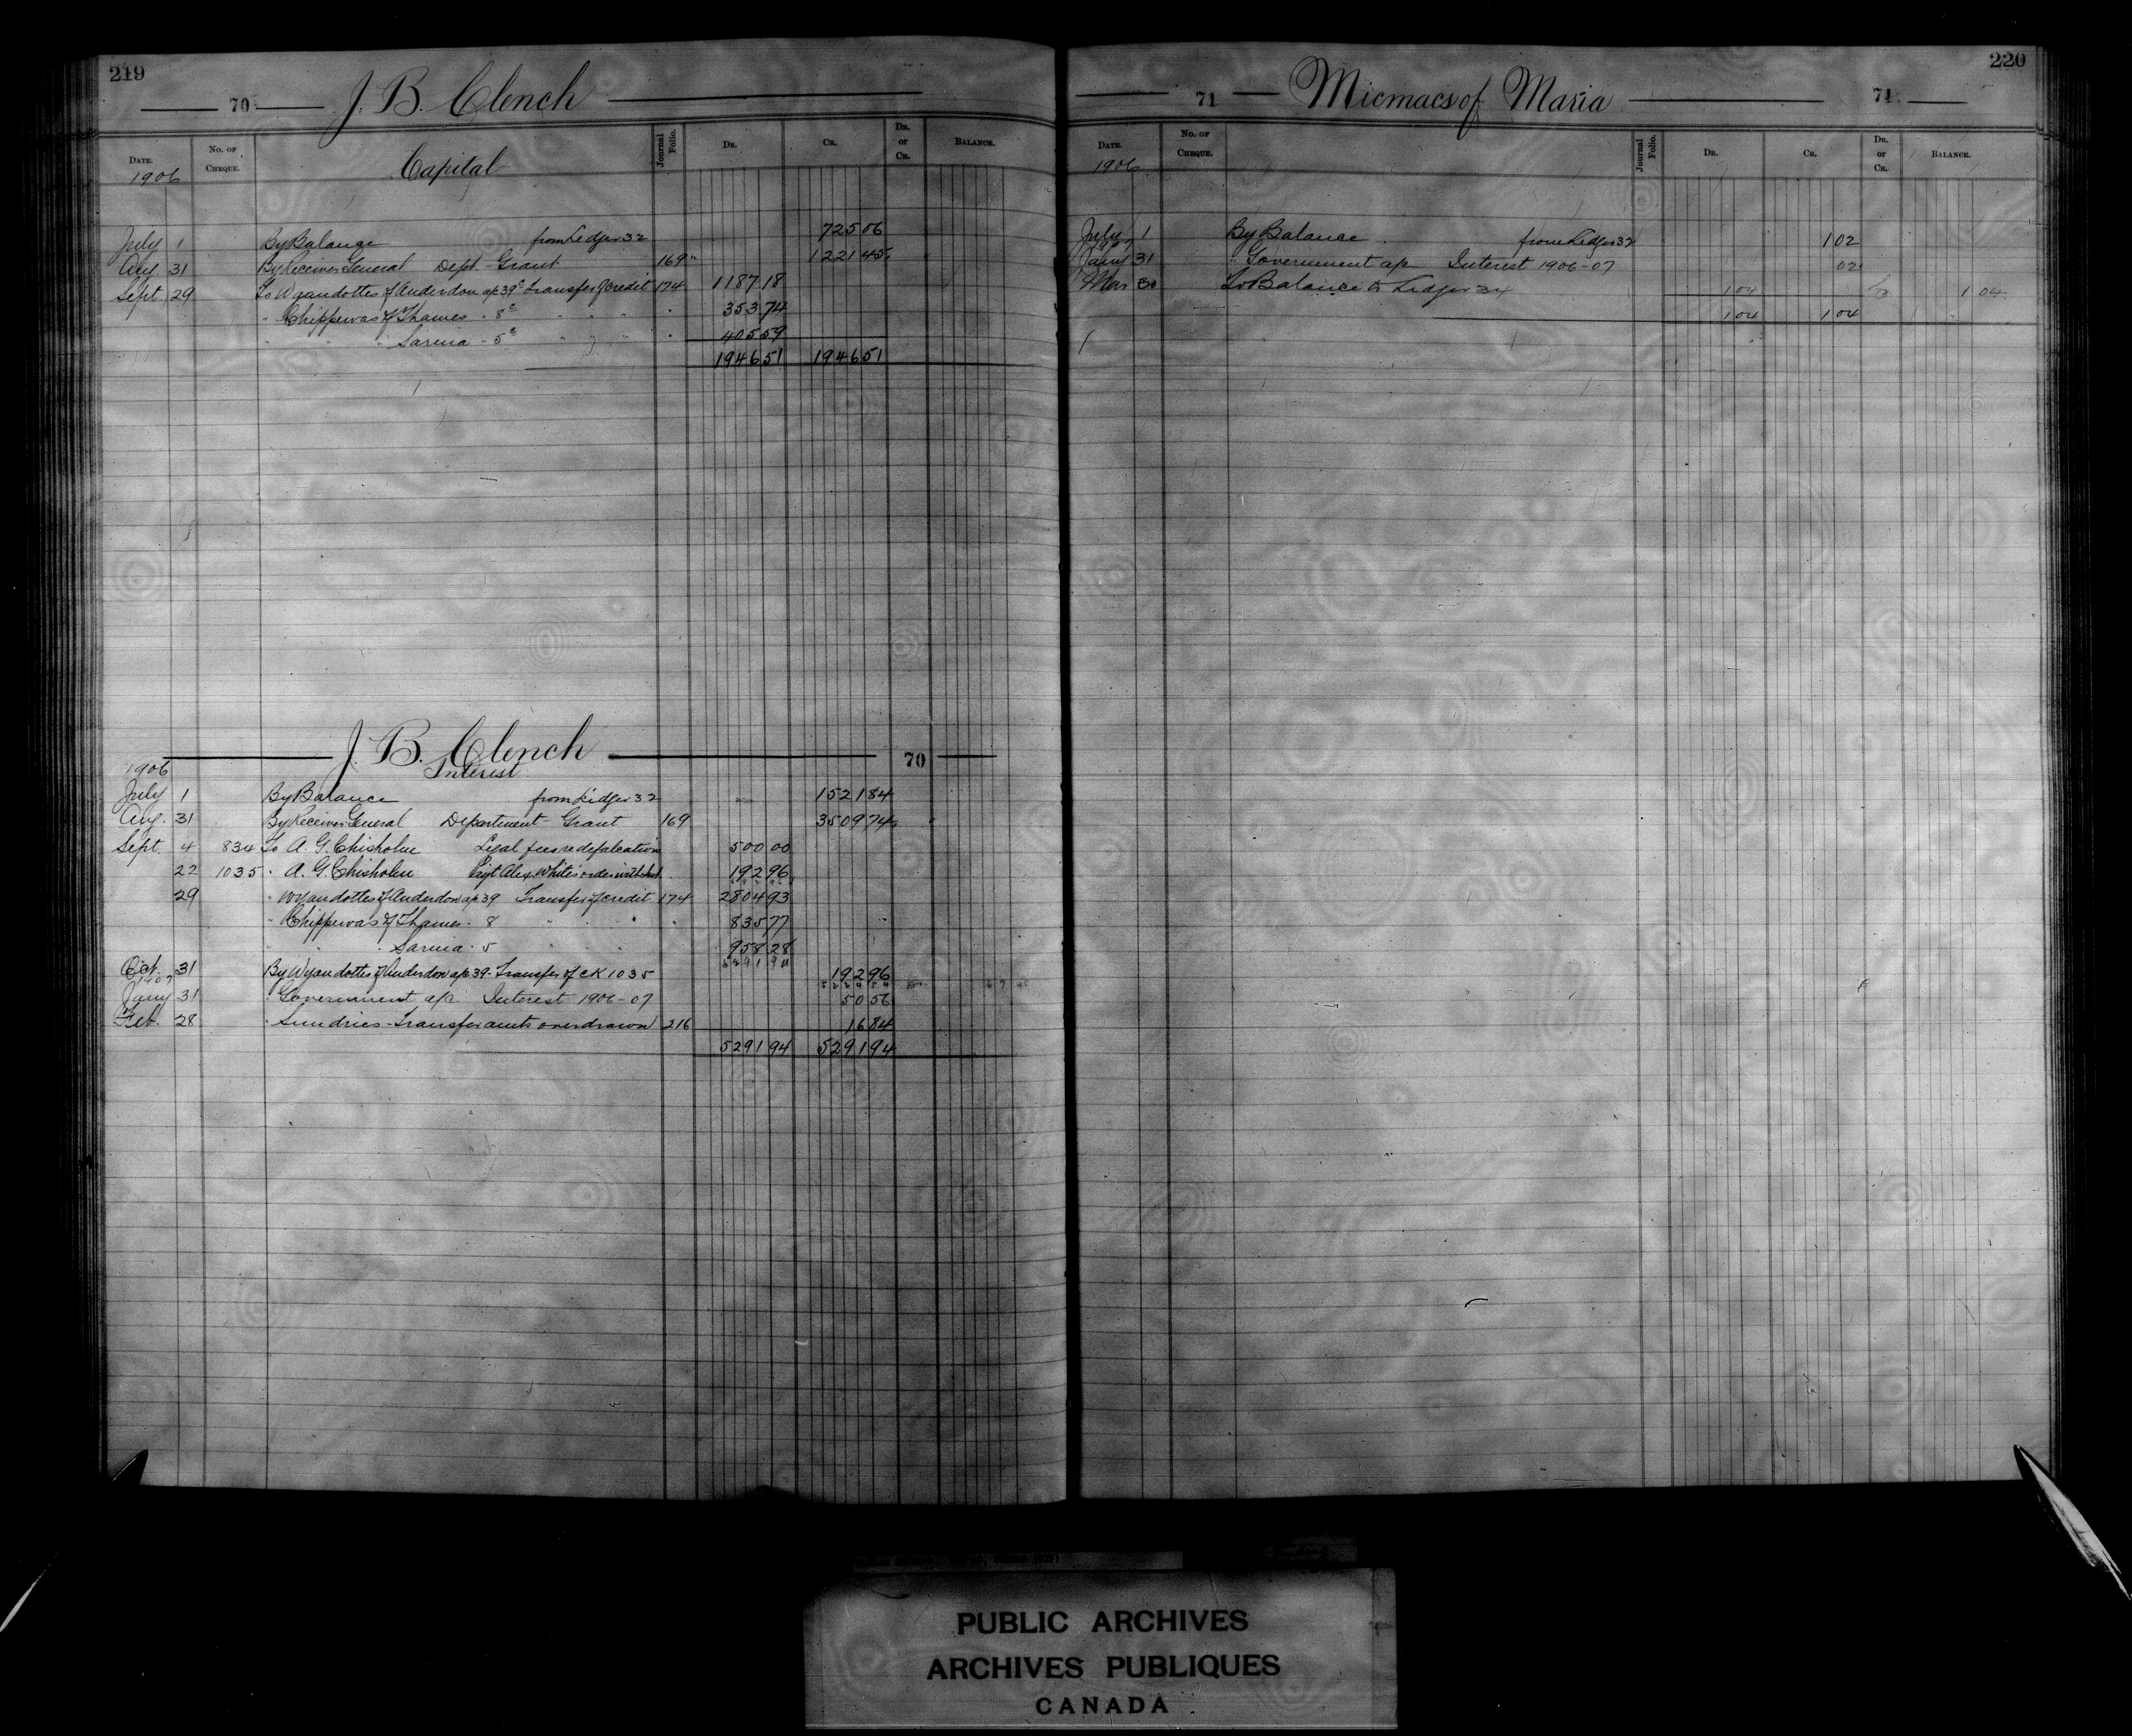 219
70 J. B. Clench
DATE. No. OF CHEQUE. Capital Journal Folio. DR. CR. DR. or CR. BALANCE.
1906
July 1 By Balance from Ledger 32 725 06
Aug 31 By Receiver General Dept. Grant 169 1221 45
Sept 29 To Wyandottes of Anderdon a/c 39c transfer of credit 174 1187 18
" Chippewas of Thames " 8c " " " " 353 74
" " " Sarnia " 5c " " " " 405 59
1946 51 1946 51
J. B. Clench 70
Interest
1906
July 1 By Balance from Ledger 32 1521 84
Aug. 31 By Receiver General Department Grant 169 3509 74
Sept. 4 834 To A. G. Chisholm Legal fees re defalcation 500 00
22 1035 " A. G. Chisholm Alex. White's order 192 96
29 " Wyandottes of Anderdon a/c 39 Transfer of credit 174 2804 93
" Chippewas of Thames " 8 " " " " 835 77
" " " Sarnia " 5 " " 958 28
Oct. 31 By Wyandottes of Anderdon a/c 39 - Transfer of CK 1035 192 96
1907
Jany 31 " Government a/c Interest 1906-07 50 56
Feb. 28 " Sundries - transfer amts overdrawn 216 16 84
5291 94 5291 94
220
71 Micmacs of Maria 71
DATE. No. OF CHEQUE. Journal Folio. DR. CR. DR. or CR. BALANCE.
1906
July 1 By Balance from Ledger 32 1 02
Jany 31 " Government a/c Interest 1906-07 02
Mar 30 To Balance to Ledger 34 1 04 1 04
1 04 1 04
PUBLIC ARCHIVES
ARCHIVES PUBLIQUES
CANADA